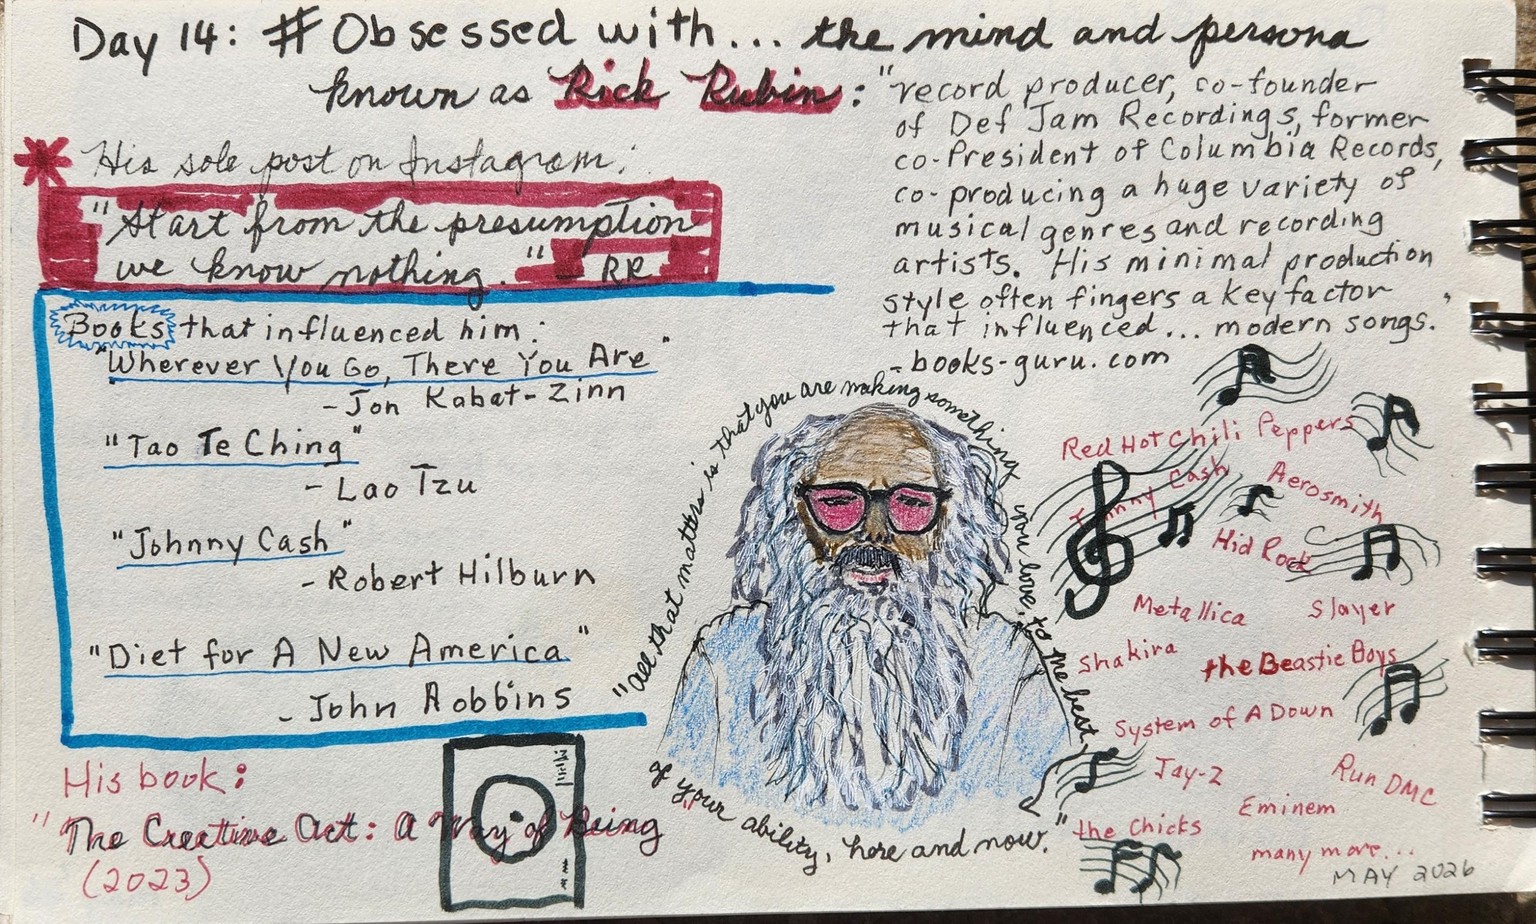 Day 14: #Obsessed with... the mind and persona
known as Rick Rubin: "record producer, co-founder
of Def Jam Recordings, former
co-President of Columbia Records,
co-producing a huge variety of
musical genres and recording
artists. His minimal production
style often fingers a key factor
that influenced... modern songs.
- books-guru.com
His sole post on Instagram:
"Start from the presumption
we know nothing." - RR
Books that influenced him:
"Wherever You Go, There You Are"
- Jon Kabat-Zinn
"Tao Te Ching"
- Lao Tzu
"Johnny Cash"
- Robert Hilburn
"Diet for A New America"
- John Robbins
His book:
"The Creative Act: A Way of Being
(2023)
"all that matters is that you are making something you love, to the best of your ability, here and now."
Red Hot Chili Peppers
Johnny Cash
Aerosmith
Kid Rock
Metallica
Slayer
Shakira
the Beastie Boys
System of A Down
Jay-Z
Run DMC
Eminem
the Chicks
many more...
MAY 2026